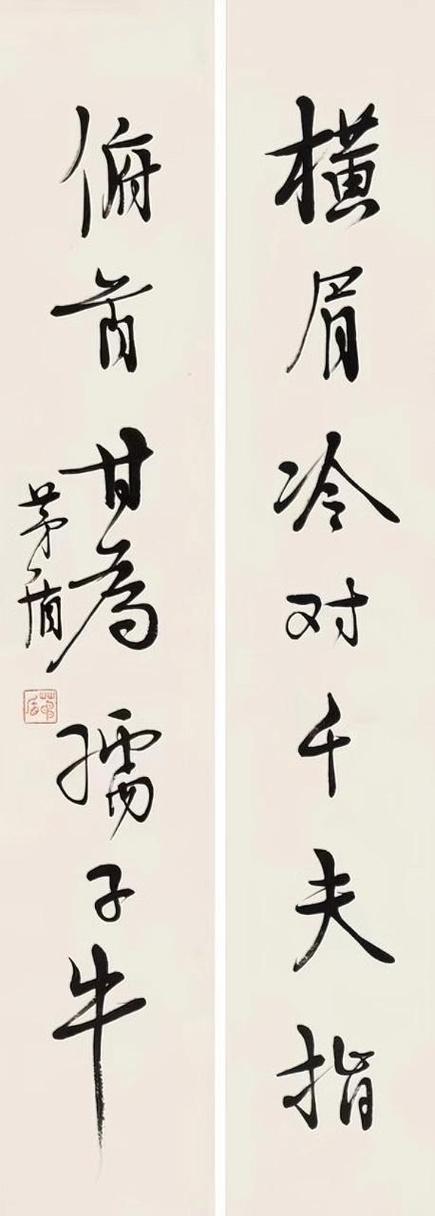 横眉冷对千夫指
俯首甘为孺子牛
茅盾